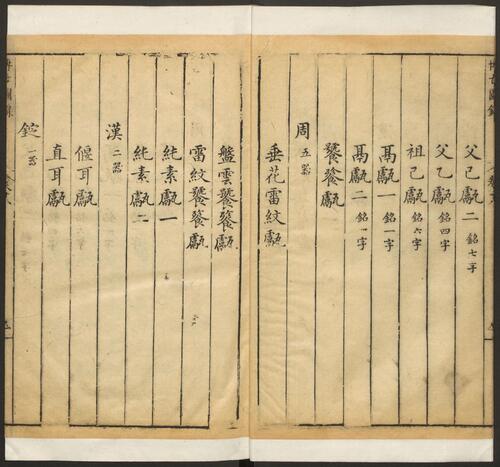 父己甗二 銘七字
父乙甗 銘四字
祖己甗 銘六字
鬲甗一 銘一字
鬲甗二 銘一字
饕餮甗
周 五器
垂花雷紋甗
盤雲饕餮甗
雷紋饕餮甗
純素甗一
純素甗二
漢 二器
偃耳甗
直耳甗
錠 一器